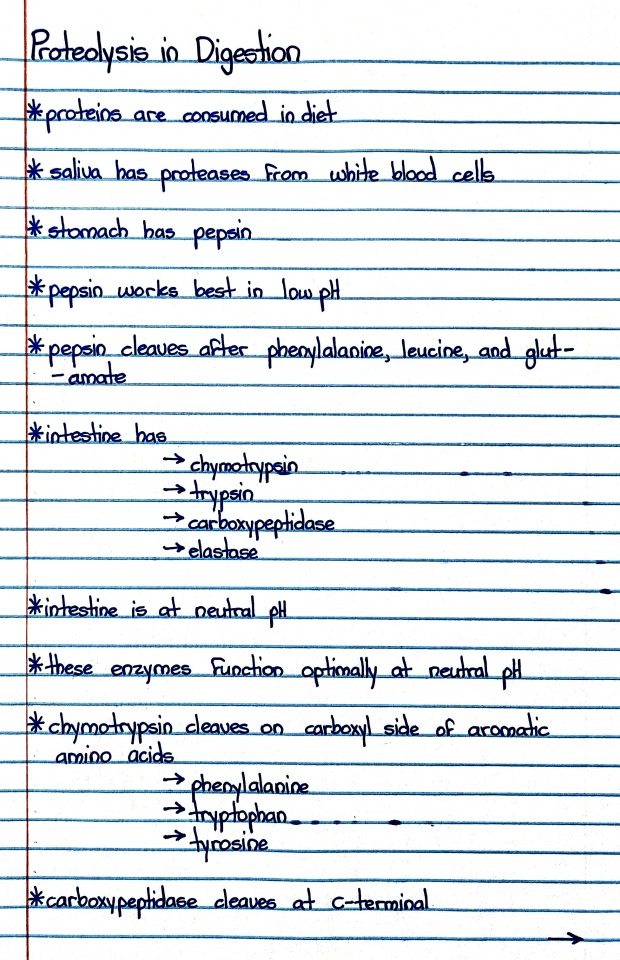 Proteolysis in Digestion
*proteins are consumed in diet
*saliva has proteases from white blood cells
*stomach has pepsin
*pepsin works best in low pH
*pepsin cleaves after phenylalanine, leucine, and glut-
-amate
*intestine has
→chymotrypsin
→trypsin
→carboxypeptidase
→elastase
*intestine is at neutral pH
*these enzymes function optimally at neutral pH
*chymotrypsin cleaves on carboxyl side of aromatic
amino acids
→phenylalanine
→tryptophan
→tyrosine
*carboxypeptidase cleaves at c-terminal
→